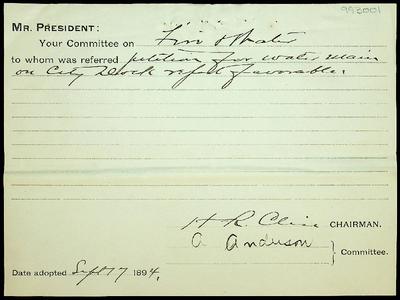 993001
MR. PRESIDENT:
Your Committee on Fire & Water
to whom was referred petition for water main
on City Dock report favorable.
H. R. Cline CHAIRMAN.
A Anderson
Committee.
Date adopted Sept 17 1894.